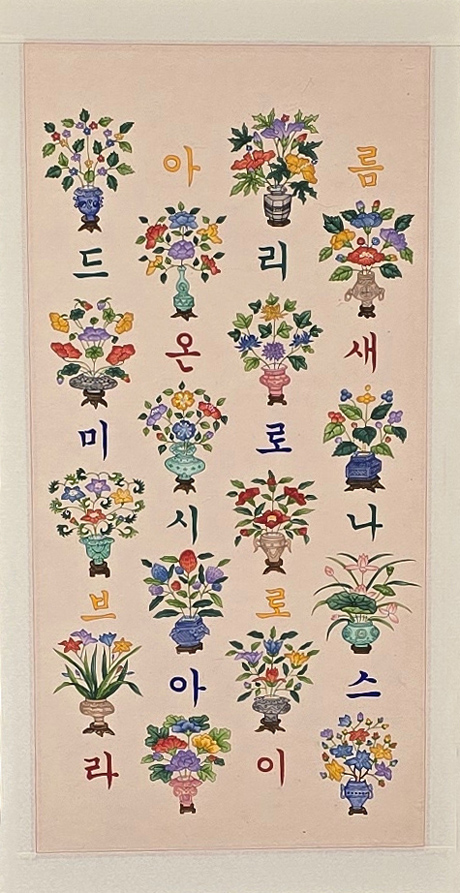 아 름
드 리
온 새
미 로
시 나
브 로
아 스
라 이